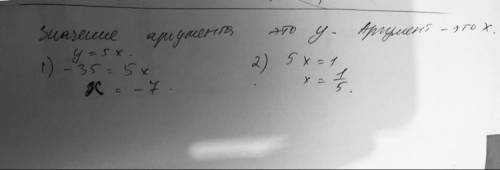 Значение аргумента это y. Аргумент - это x.
y = 5x.
1) -35 = 5x
x = -7.
2) 5x = 1
x = 1/5.